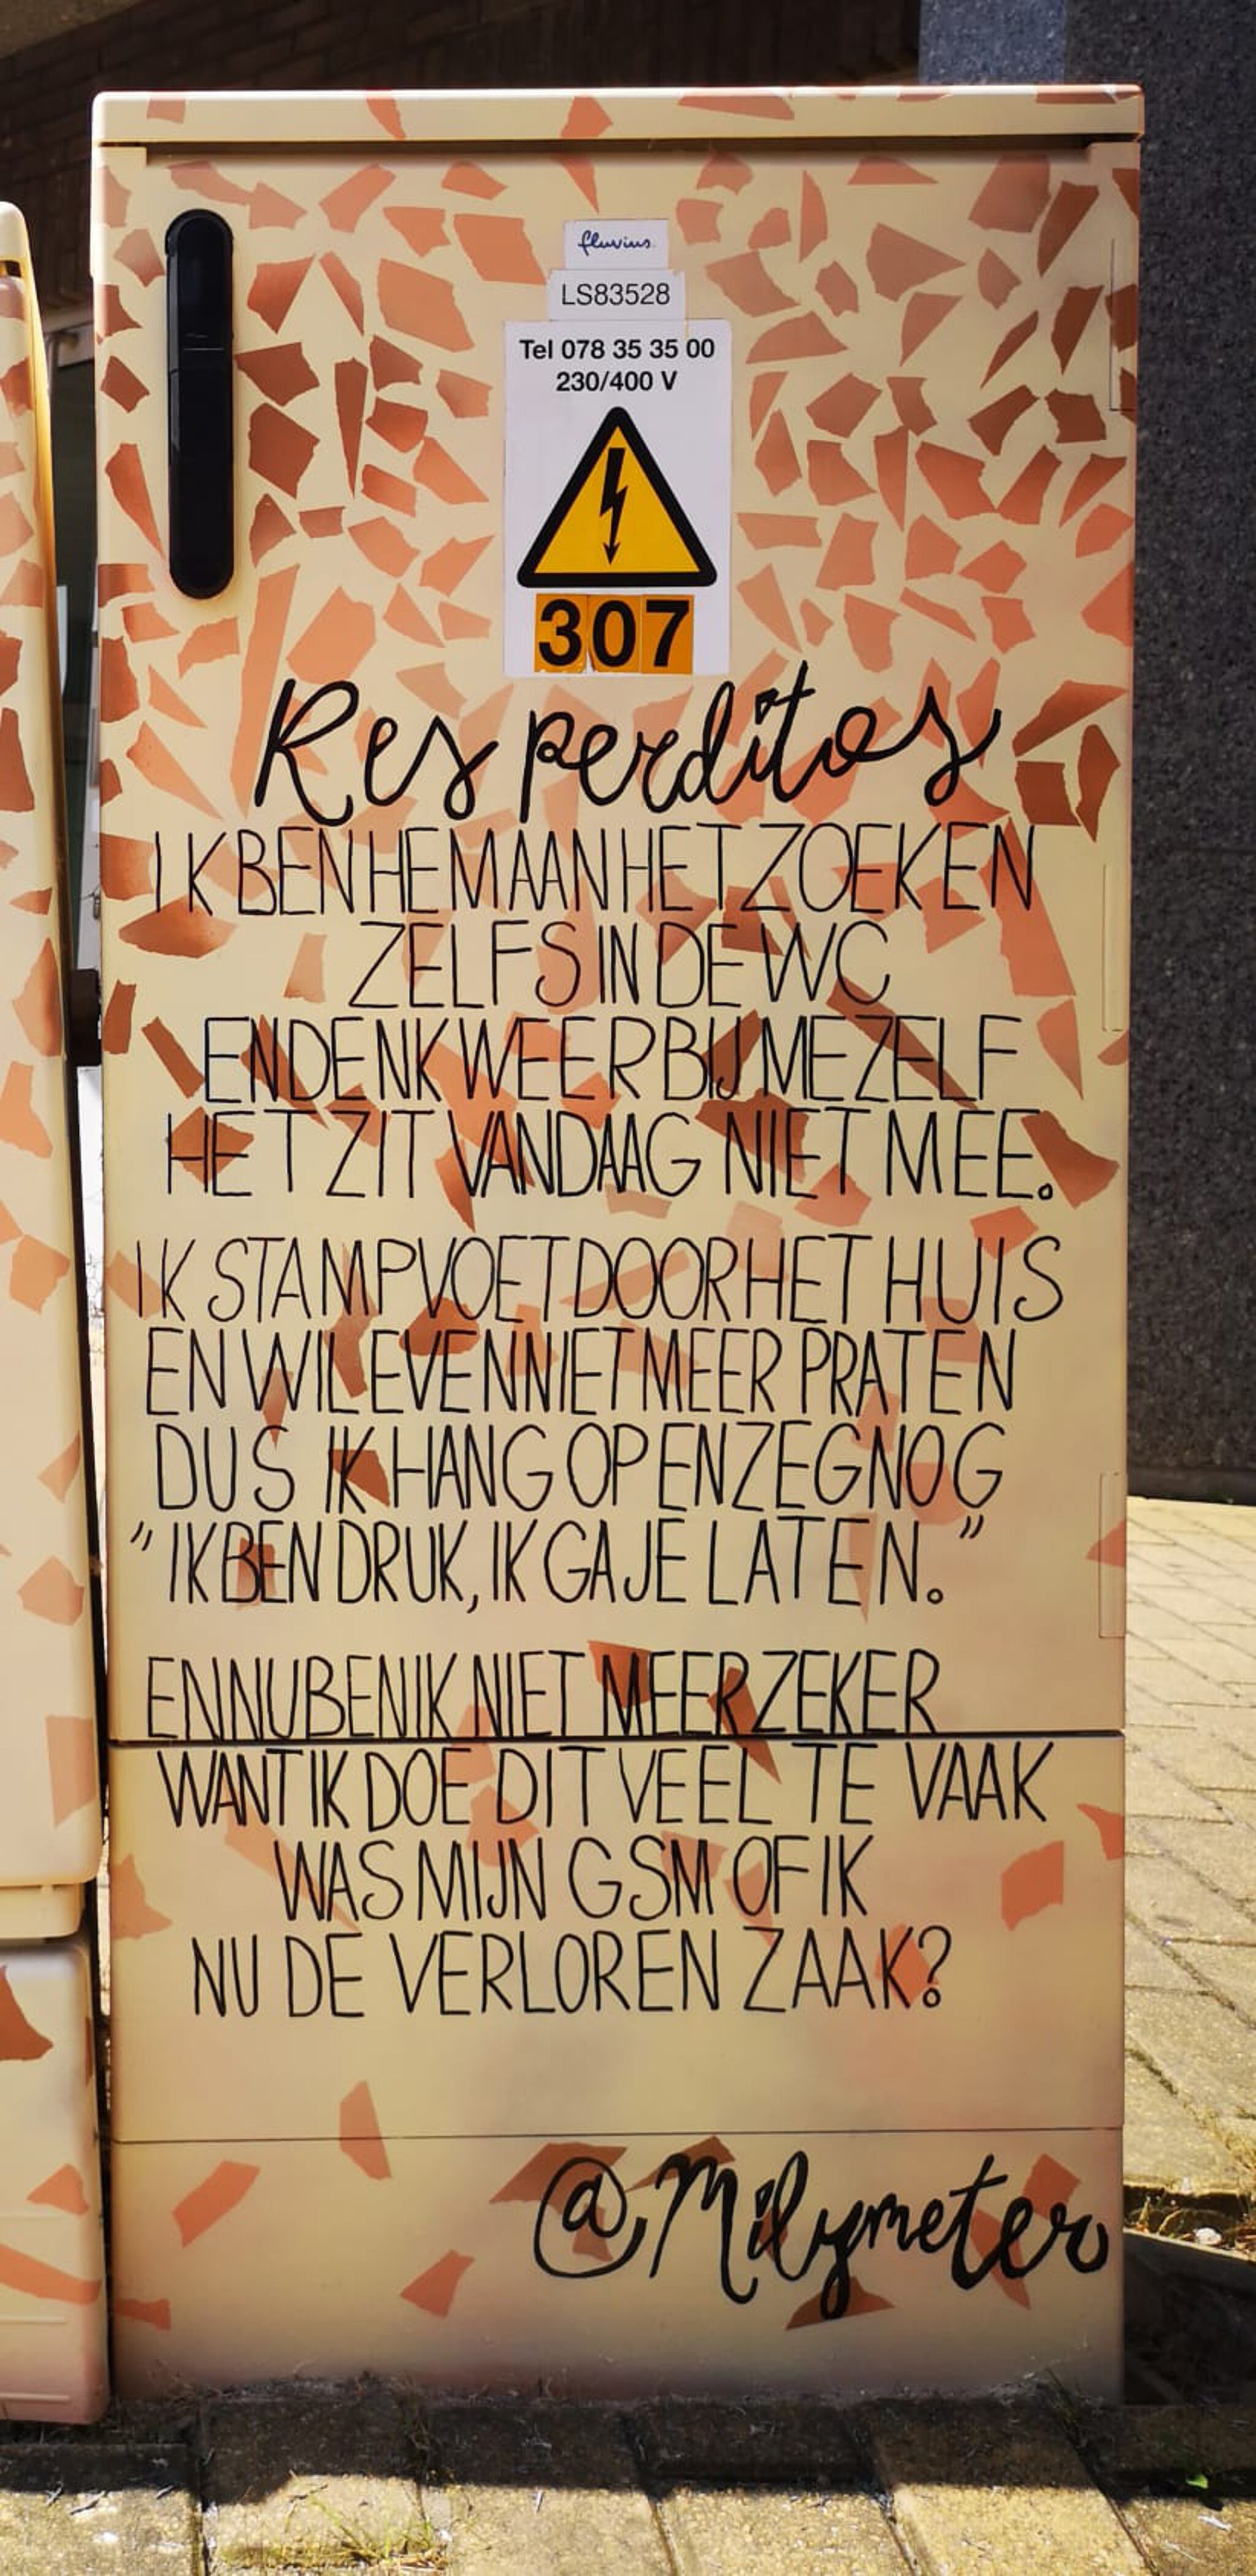 fluvius.
LS83528
Tel 078 35 35 00
230/400 V
307
Res perditos
IK BEN HEM AAN HET ZOEKEN
ZELFS IN DE WC
EN DENK WEER BIJ MEZELF
HET ZIT VANDAAG NIET MEE.
IK STAMPVOET DOOR HET HUIS
EN WIL EVEN NIET MEER PRATEN
DUS IK HANG OP EN ZEG NOG
"IK BEN DRUK, IK GA JE LATEN."
EN NU BEN IK NIET MEER ZEKER
WANT IK DOE DIT VEEL TE VAAK
WAS MIJN GSM OF IK
NU DE VERLOREN ZAAK?
@Milymeter